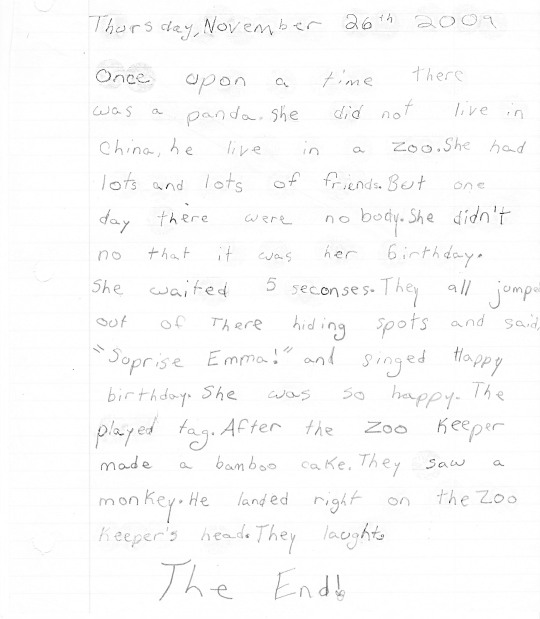 Thursday, November 26th 2009
Once upon a time there
was a panda. She did not live in
China, he live in a zoo. She had
lots and lots of friends. But one
day there were no body. She didn't
no that it was her birthday.
She waited 5 seconses. They all jumped
out of There hiding spots and said,
"Soprise Emma!" and singed Happy
birthday. She was so happy. The
played tag. After the zoo keeper
made a bamboo cake. They saw a
monkey. He landed right on the zoo
keeper's head. They laught.
The End!